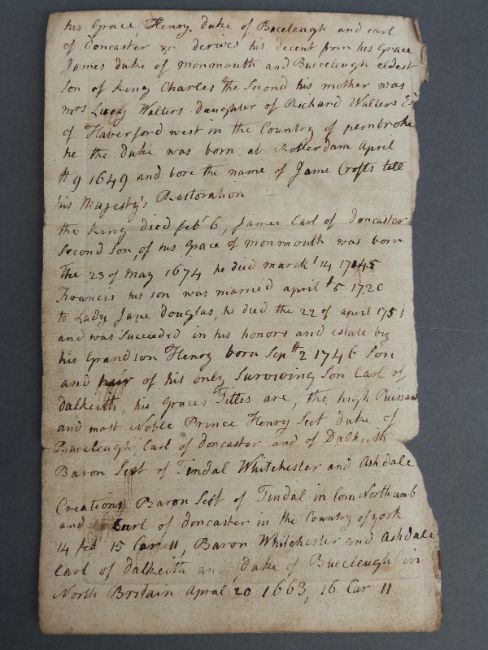 his Grace Henry Duke of Buccleugh and earl
of Doncaster &c derives his decent from his Grace
James duke of monmouth and Buccleugh eldest
Son of King Charles the Second his mother was
mrs Lucy Walters Daughter of Richard Walters Es
of Haverford west in the Country of pembroke
he the Duke was born at Rotterdam April
th 9 1649 and bore the name of Jame Crofts tell
his Majesty's Restoration
the King died feb 6, James Earl of Doncaster
Second Son, of his Grace of monmouth was born
The 23 of May 1674 he died march 14 1745
Francis his son was married april th 5 1720
to Lady Jane Douglas, he died the 22 of april 1751
and was Succeeded in his honors and estate by
his Grandson Henry born Sep th 2 1746 Son
and hair of his only Surviving Son Earl of
Dalkeith, his Graces Titles are, the high Puissan
and most Noble Prince Henry Scot Duke of
Buccleugh, Earl of Doncaster and of Dalkeith
Baron Scot of Tindal Whitchester and Ashdale
Creations Baron Scot of Tindal in Com Northumb
and Earl of Doncaster in the Country of york
14 feb 15 Car 11, Baron Whitchester and Ashdale
Earl of Dalkeith and Duke of Buccleugh in
North Britain April 20 1663, 16 Car 11